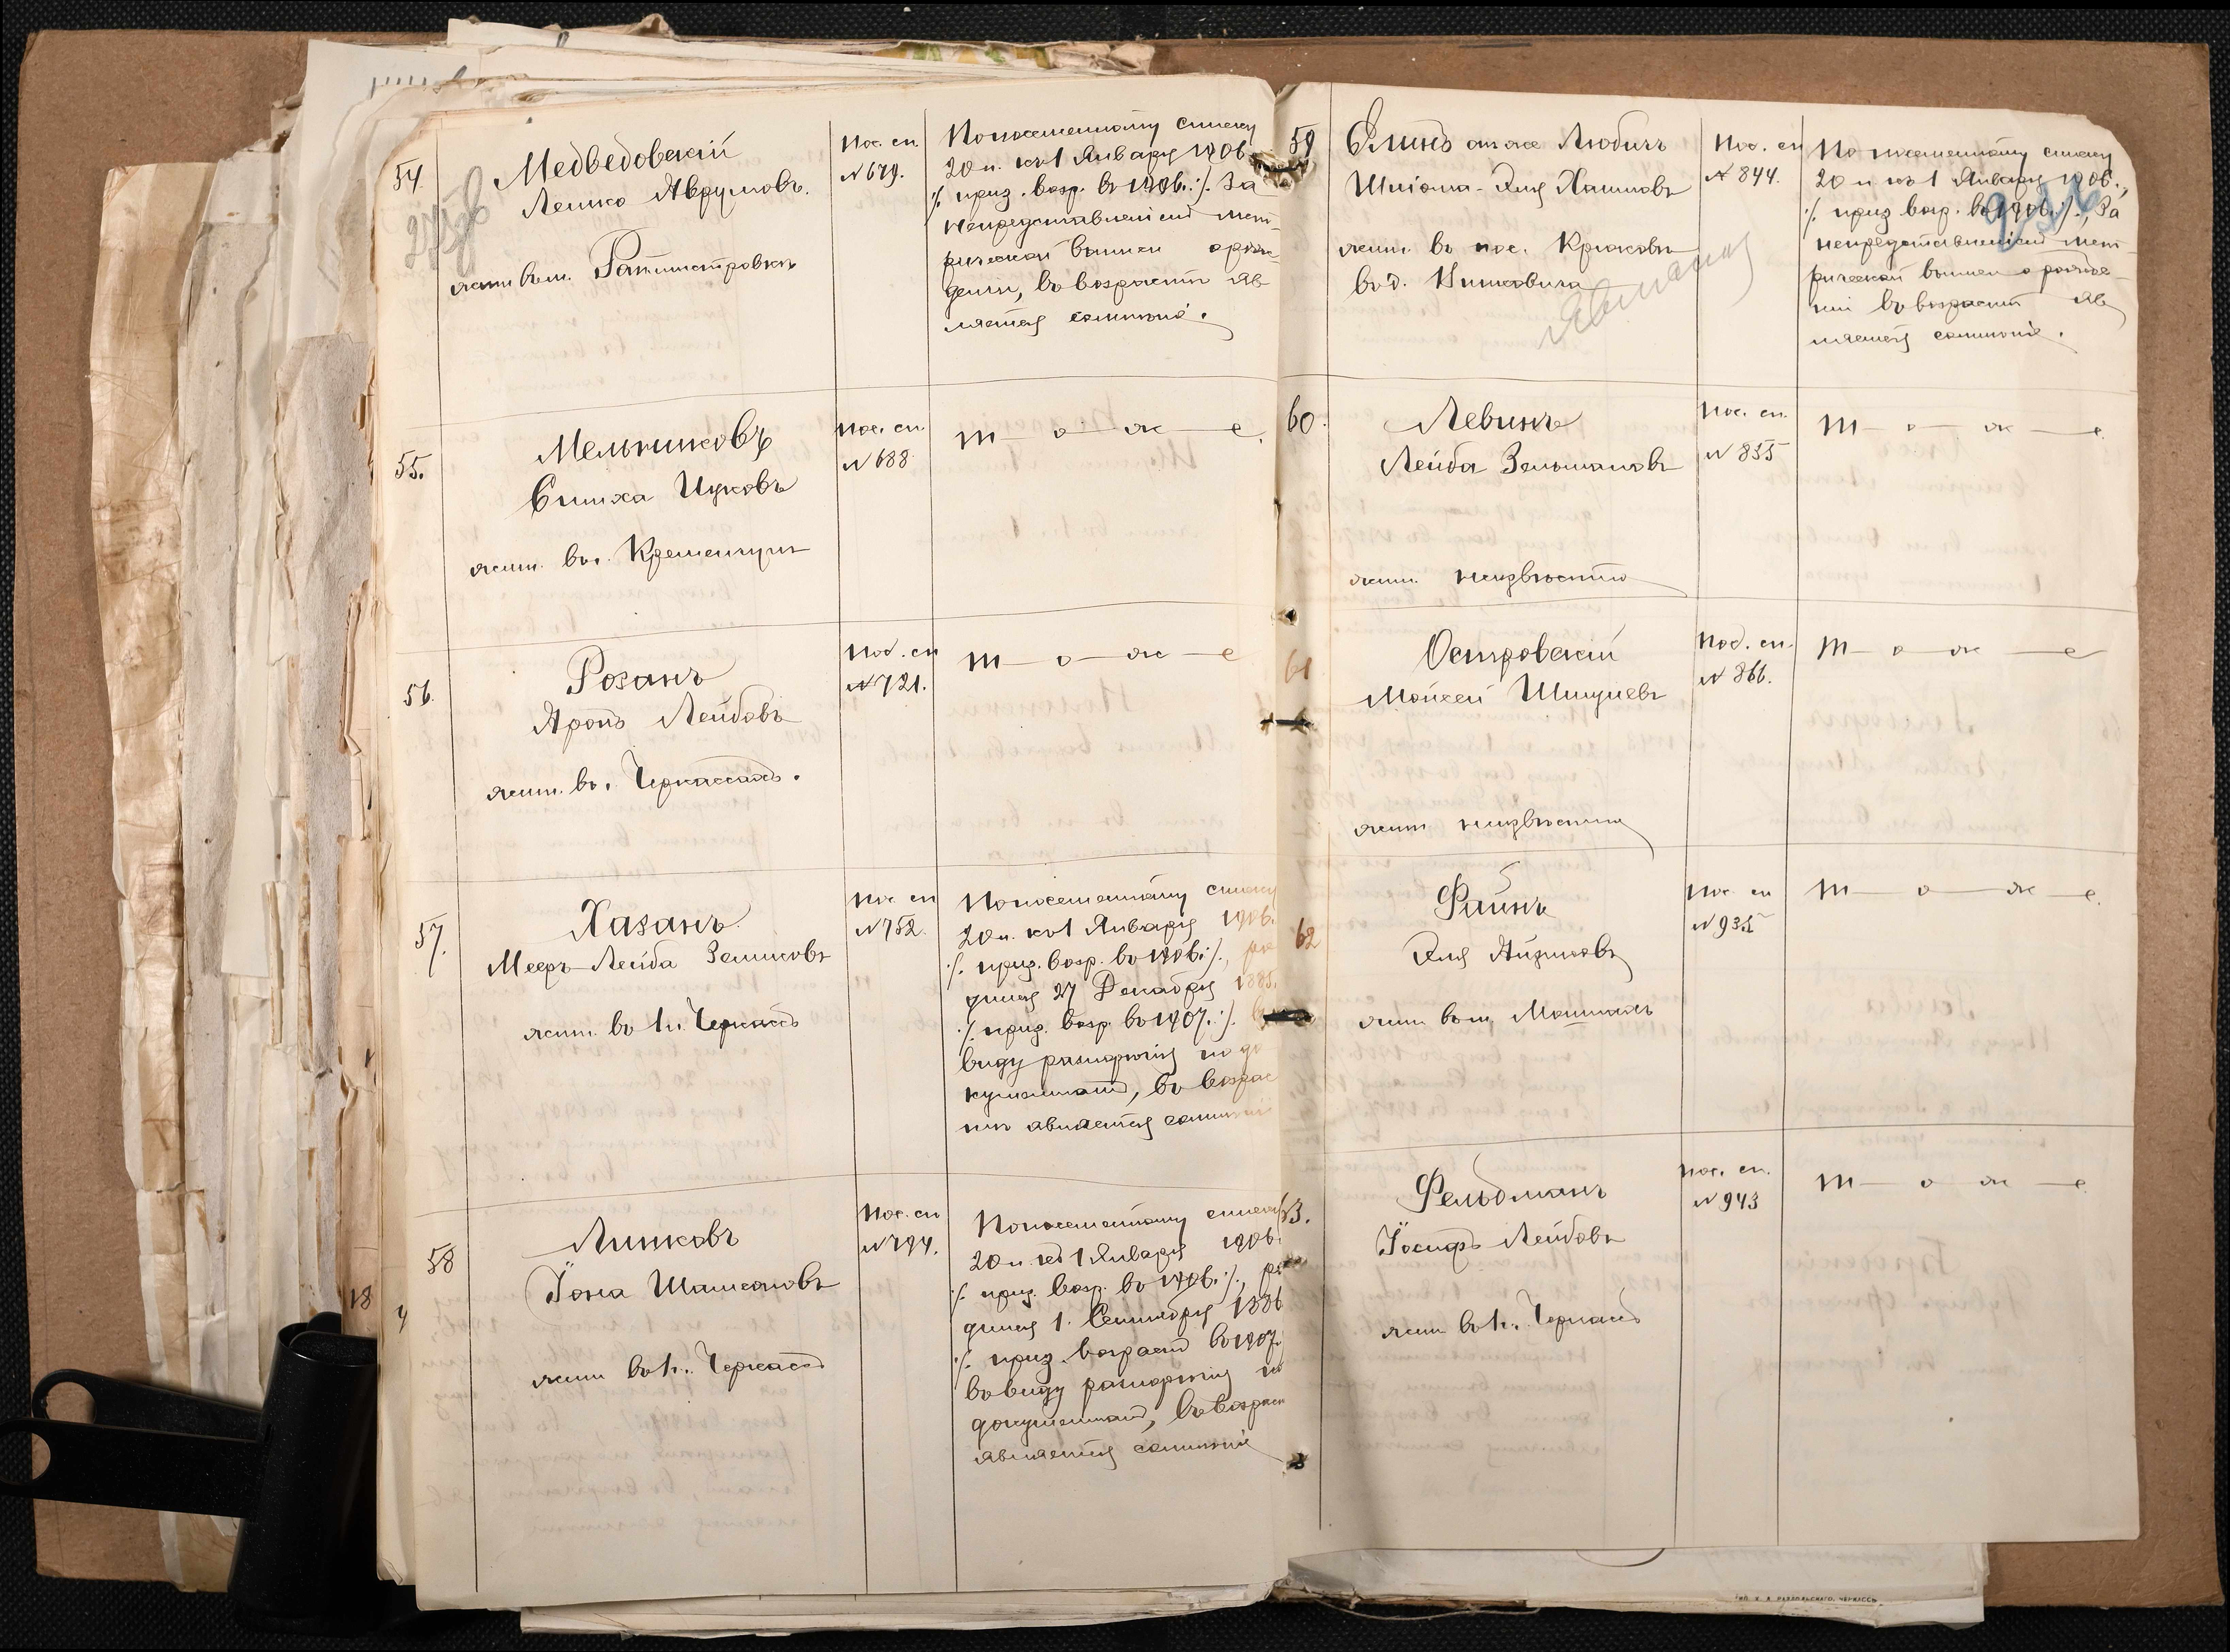 54.
Медведовскій
Лейко Аврумовъ.
жит. въ м. Ротмистровкѣ
Пос. сп.
№ 679.
По посемейному списку
20 л. къ 1 Января 1906
·/. приз. возр. въ 1906./. За
непредставленіемъ мет-
рической выписи о рож-
деніи, въ возрастѣ яв-
ляется сомнѣніе.
55.
Мельниковъ
Симха Ицковъ
жит. въ г. Кременчугѣ
Пос. сп.
№ 688
т о ж е.
56.
Розанъ
Аронъ Лейбовъ
жит. въ г. Черкассахъ.
Пос. сп.
№ 721.
т о ж е
57.
Хазанъ
Мееръ-Лейба Зеликовъ
жит. въ г. Черкассахъ
Пос. сп.
№ 752.
По посемейному списку
20 л. къ 1 Января 1906.
·/. приз. возр. въ 1906./., ро
дился 27 Декабря 1885.
·/. приз. возр. въ 1907./. въ
виду разнорѣчія по до
кументамъ, въ возрас
тѣ является сомнѣніе
58
Липковъ
Іона Шамсоновъ
жит. въ г. Черкассахъ
Пос. сп.
№ 794.
По посемейному списку
20 л. къ 1 Января 1906.
·/. приз. возр. въ 1906./., ро
дился 1. Сентября 1886
·/. приз. возраст въ 1907.
въ виду разнорѣчія по
документамъ, въ возраст
является сомнѣніе
18
59
Слинъ онъ же Любичъ
Шліома-Эля Хаимовъ
жит. въ пос. Крюковъ
въ д.
Пос. сп.
№ 844.
По посемейному списку
20 л. къ 1 Января 1906.,
·/. приз. возр. въ 1906./. За
непредставленіемъ мет-
рической выписи о рожде-
ніи въ возрастѣ яв
ляется сомнѣніе.
60.
Левинъ
Лейба Зельмановъ
жит. неизвѣстно
Пос. сп.
№ 855
т о ж е.
61
Островскій
Мойсей Шмулевъ
жит. неизвѣстно
Пос. сп.
№ 866.
т о ж е
62
Файнъ
Эля Айзиковъ
жит. въ м. Мошнахъ
Пос. сп
№ 935
т о ж е.
63.
Фельдманъ
Іосифъ Лейбовъ
жит. въ г. Черкассахъ
Пос. сп.
№ 943
т о ж е